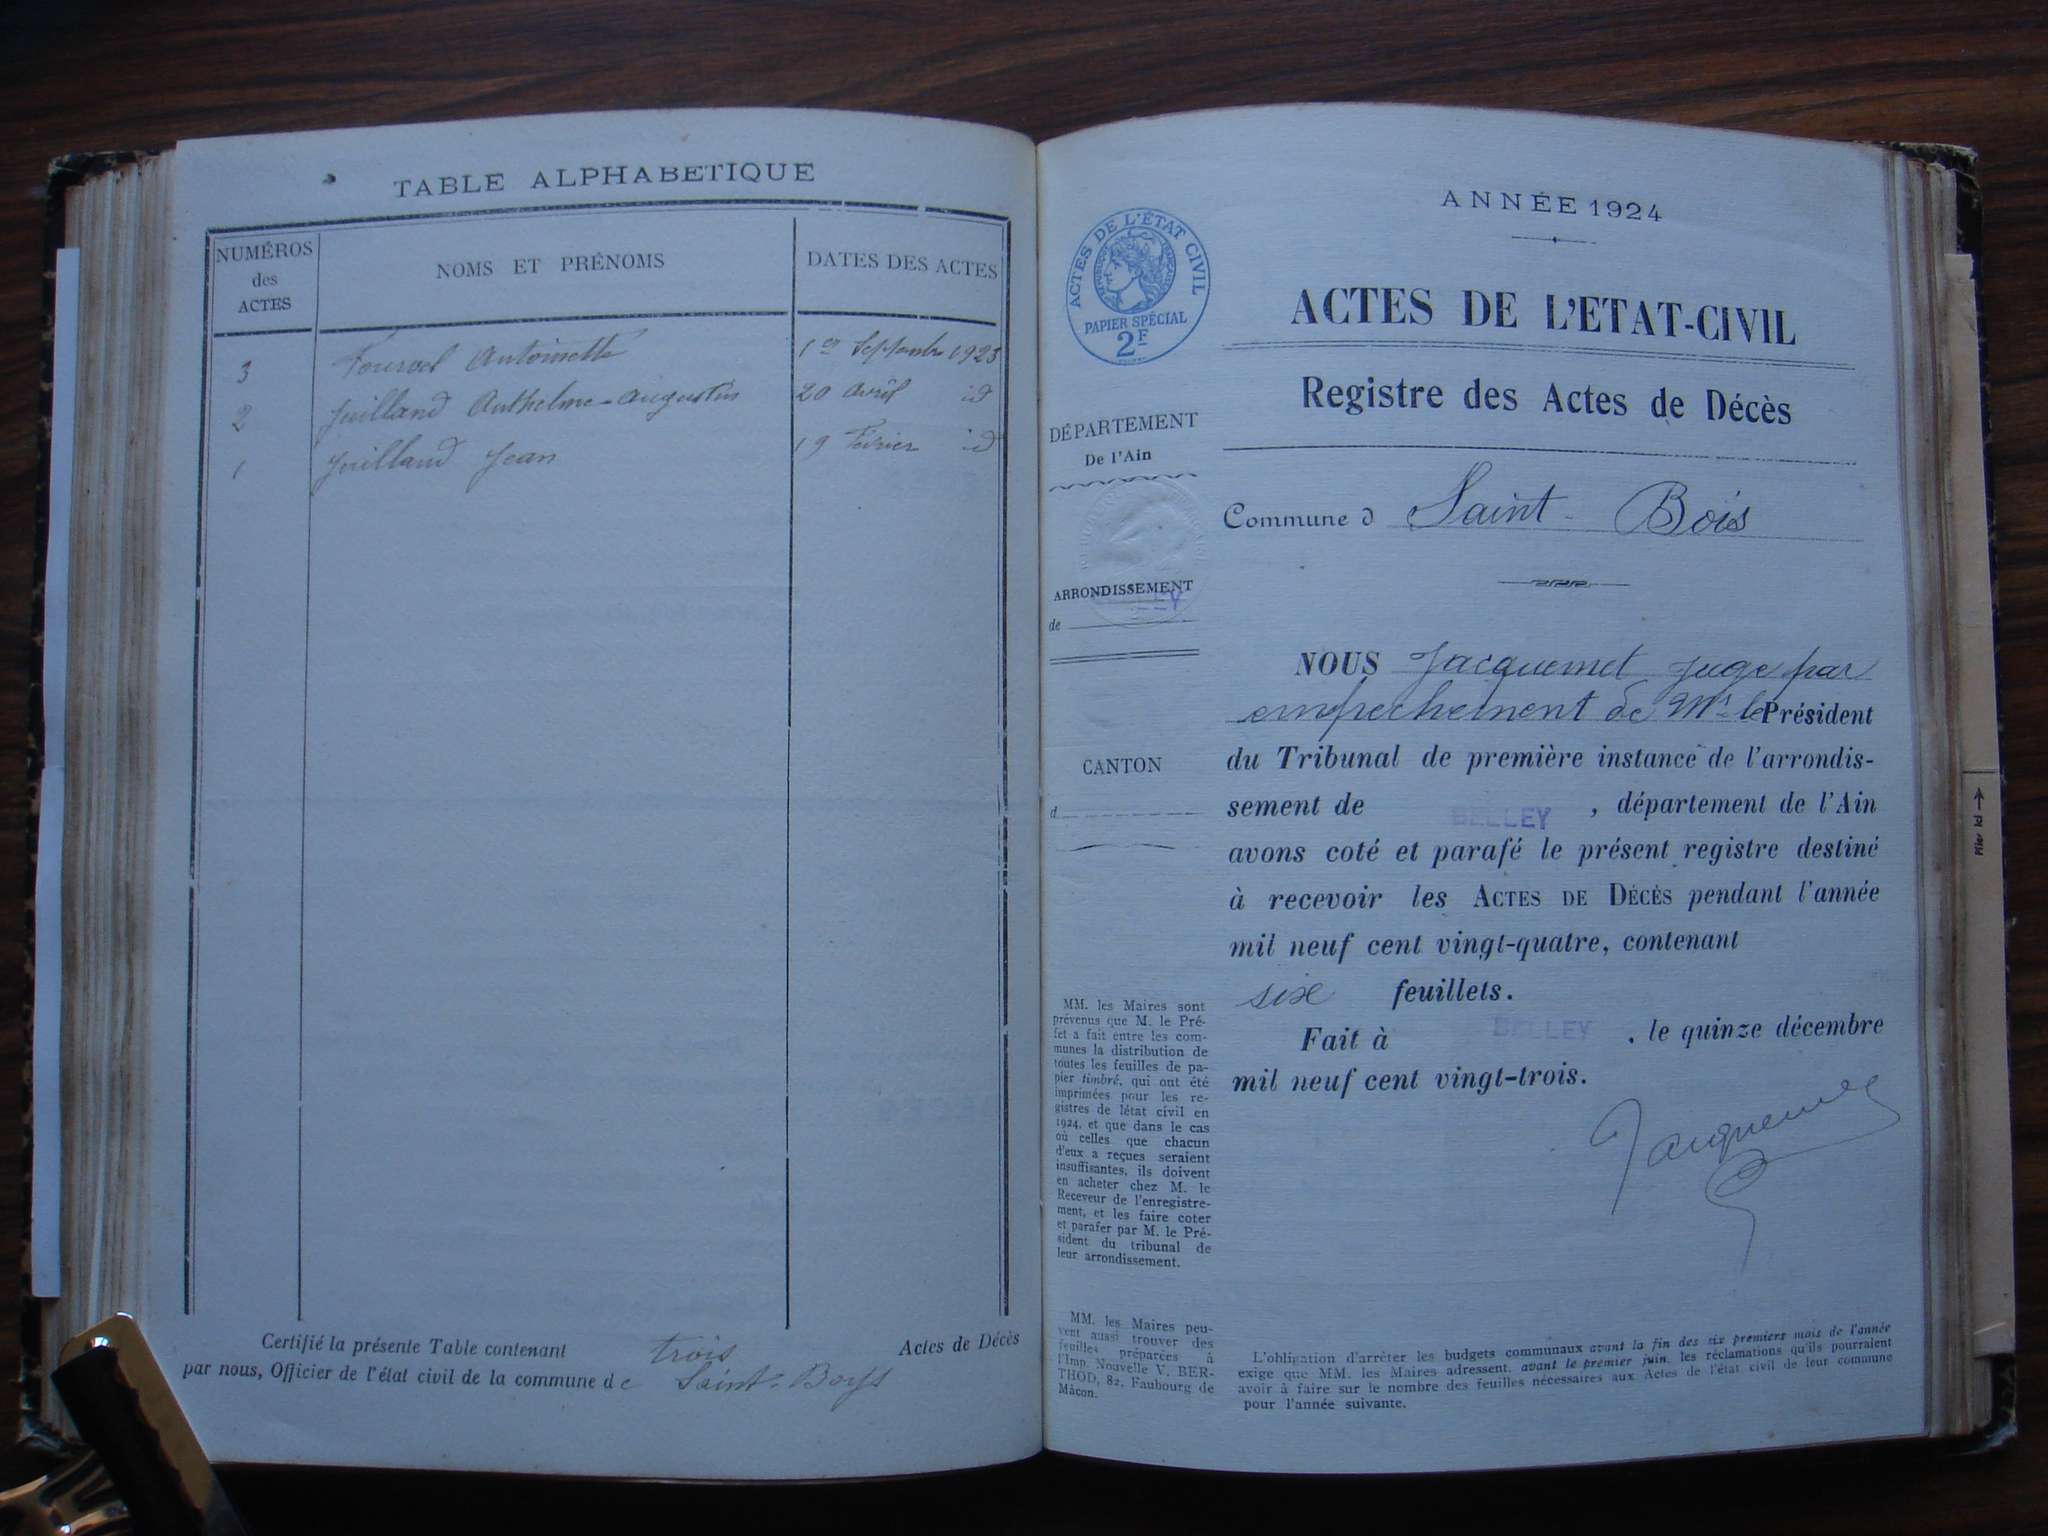 TABLE ALPHABETIQUE
NUMÉROS des ACTES
NOMS ET PRÉNOMS
DATES DES ACTES
3 Antoinette 1er Septembre 1923
2 Juilland Anthelme-Augustin 20 avril id
1 Juilland Jean 19 Février id
Certifié la présente Table contenant trois Actes de Décès
par nous, Officier de l'état civil de la commune de Saint-Boys
ANNÉE 1924
ACTES DE L'ÉTAT CIVIL
RÉPUBLIQUE FRANÇAISE
PAPIER SPÉCIAL
2F
ACTES DE L'ETAT-CIVIL
Registre des Actes de Décès
DÉPARTEMENT
De l'Ain
Commune d Saint-Bois
ARRONDISSEMENT
de
CANTON
d
NOUS Jacquemet juge par
empechement de Mr le Président
du Tribunal de première instance de l'arrondis-
sement de BELLEY, département de l'Ain
avons coté et parafé le présent registre destiné
à recevoir les ACTES DE DÉCÈS pendant l'année
mil neuf cent vingt-quatre, contenant
six feuillets.
Fait à BELLEY, le quinze décembre
mil neuf cent vingt-trois.
Jacquemet
MM. les Maires sont
prévenus que M. le Pré-
fet a fait entre les com-
munes la distribution de
toutes les feuilles de pa-
pier timbré, qui ont été
imprimées pour les re-
gistres de létat civil en
1924, et que dans le cas
où celles que chacun
d'eux a reçues seraient
insuffisantes, ils doivent
en acheter chez M. le
Receveur de l'enregistre-
ment, et les faire coter
et parafer par M. le Pré-
sident du tribunal de
leur arrondissement.
MM. les Maires peu-
vent aussi trouver des
feuilles préparées à
l'Imp. Nouvelle V. BER-
THOD, 82, Faubourg de
Mâcon.
L'obligation d'arrêter les budgets communaux avant la fin des six premiers mois de l'année
exige que MM. les Maires adressent, avant le premier juin, les réclamations qu'ils pourraient
avoir à faire sur le nombre des feuilles nécessaires aux Actes de l'état civil de leur commune
pour l'année suivante.